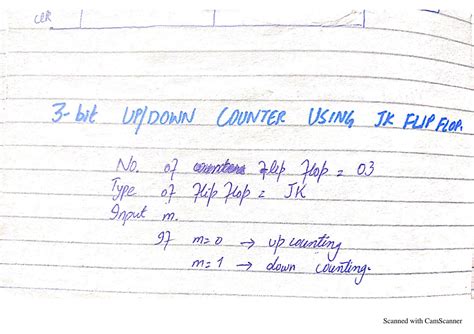 CLR
3-bit UP/DOWN COUNTER USING JK FLIP FLOP.
No. of flip flop = 03
Type of flip flop = JK
Input m.
If m=0 → up counting
m=1 → down counting.
Scanned with CamScanner